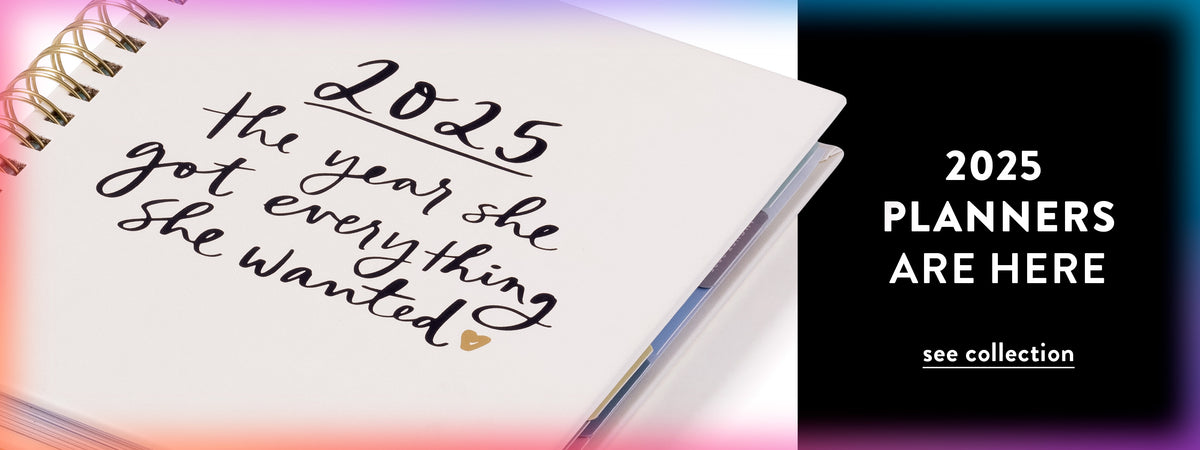 2025
the year she
got everything
she wanted
2025
PLANNERS
ARE HERE
see collection